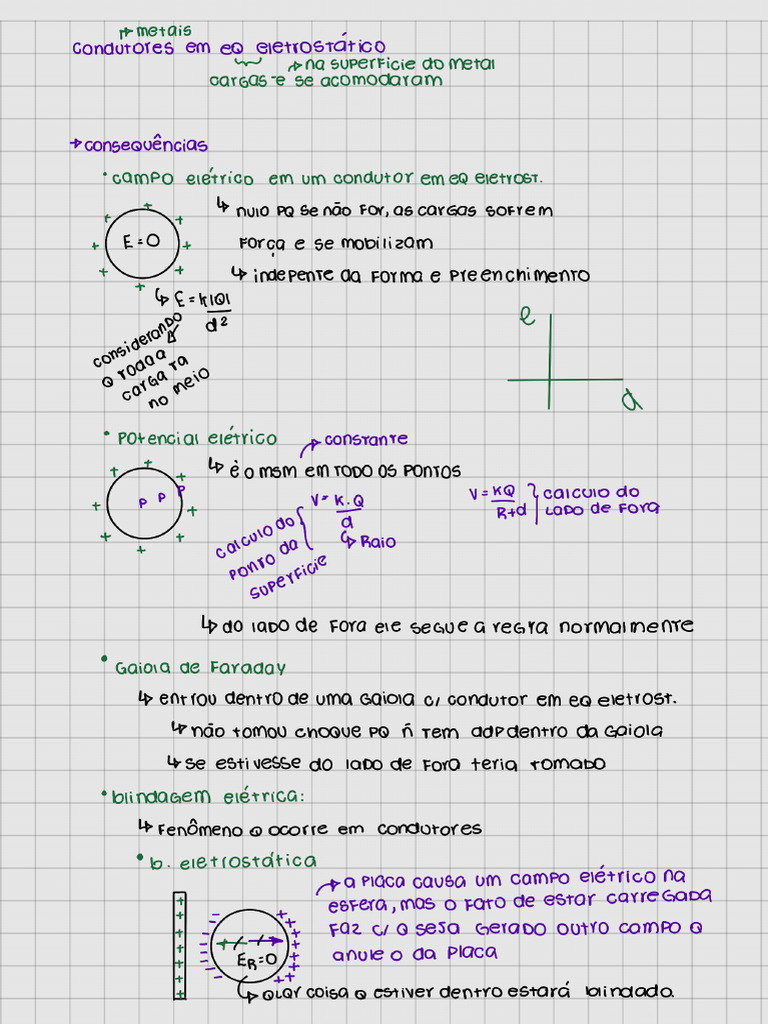 → metais
condutores em eq eletrostático
→ na superfície do metal
cargas-e se acomodaram
→ consequências
• campo elétrico em um condutor em eq eletrost.
↳ nulo pq se não for, as cargas sofrem
força e se mobilizam
↳ indepente da forma e preenchimento
+ + + + + + + +
E = 0
↳ E = K|Q|
d²
considerando
q toda a
carga ta
no meio
e
d
• potencial elétrico
→ constante
↳ é o msm em todo os pontos
+ + + + + + + +
P P P
V = K.Q
d
↳ Raio
calculo do
ponto da
superfície
V = KQ
R+d
calculo do
lado de fora
↳ do lado de fora ele segue a regra normalmente
• Gaiola de Faraday
↳ entrou dentro de uma gaiola c/ condutor em eq eletrost.
↳ não tomou choque pq ñ tem ddp dentro da gaiola
↳ se estivesse do lado de fora teria tomado
• blindagem elétrica:
↳ Fenômeno q ocorre em condutores
• b. eletrostática
→ a placa causa um campo elétrico na
esfera, mas o fato de estar carregada
faz c/ q seja gerado outro campo q
anule o da placa
E_R = 0
↳ qlqr coisa q estiver dentro estará blindado.